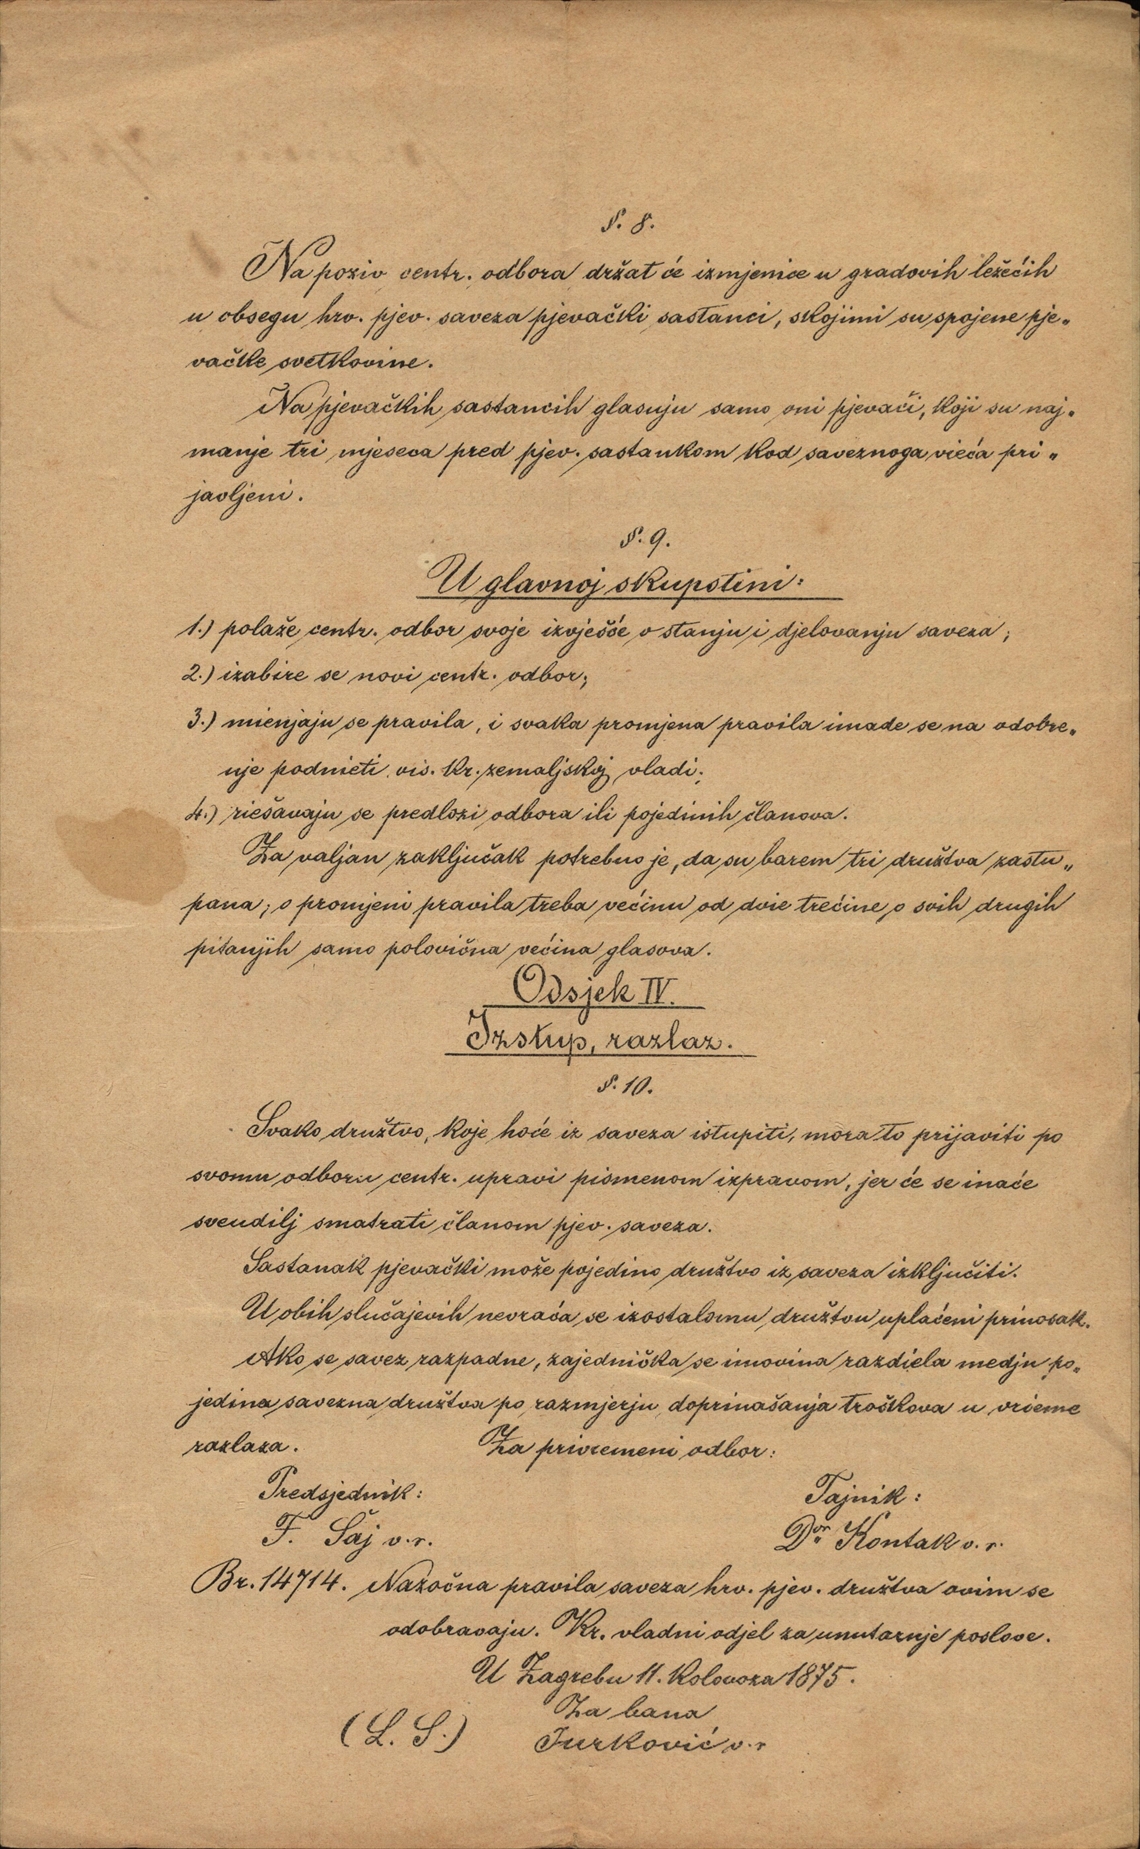 §. 8.
Na poziv centr. odbora držat će izmjenice u gradovih ležećih
u obsegu hrv. pjev. saveza pjevački sastanci, skojimi su spojene pje„
vačke svetkovine.
Na pjevačkih sastancih glasuju samo oni pjevači, koji su naj„
manje tri mjeseca pred pjev. sastankom kod saveznoga vieća pri„
javljeni.
§. 9.
U glavnoj skupstini:
1.) polaže centr. odbor svoje izvješće o stanju i djelovanju saveza;
2.) izabire se novi centr. odbor;
3.) mienjaju se pravila, i svaka promjena pravila imade se na odobre„
nje podnieti vis. kr. zemaljskoj vladi;
4.) riešavaju se predlozi odbora ili pojedinih članova.
Za valjan zaključak potrebno je, da su barem tri družtva zastu„
pana; o promjeni pravila treba većinu od dvie trećine, o svih drugih
pitanjih samo polovična većina glasova.
Odsjek IV.
Izstup, razlaz.
§. 10.
Svako družtvo, koje hoće iz saveza istupiti, mora to prijaviti po
svomu odboru centr. upravi pismenom izpravom, jer će se inače
sveudilj smatrati članom pjev. saveza.
Sastanak pjevački može pojedino družtvo iz saveza izključiti.
U obih slučajevih nevraća se izostalomu družtvu uplaćeni prinosak.
Ako se savez razpadne, zajednička se imovina razdiela medju po„
jedina savezna družtva po razmjerju doprinašanja troškova u vrieme
razlaza. Za privremeni odbor:
Predsjednik: Tajnik:
F. Šaj v. r. Dor Kontak v. r.
Br. 14714. Nazočna pravila saveza hrv. pjev. družtva ovim se
odobravaju. Kr. vladni odjel za unutarnje poslove.
U Zagrebu 11. kolovoza 1875.
Za bana
(L. S.) Jurković v. r